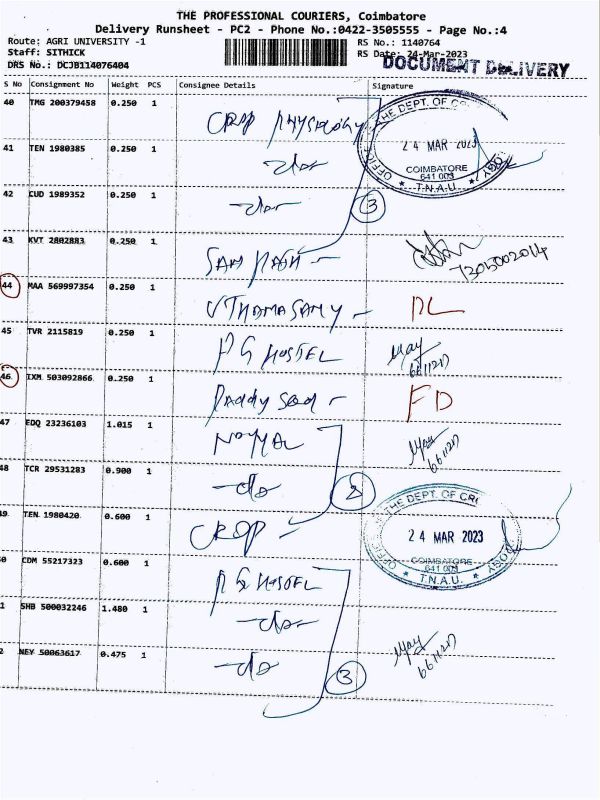 THE PROFESSIONAL COURIERS, Coimbatore
Delivery Runsheet - PC2 - Phone No.:0422-3505555 - Page No.:4
Route: AGRI UNIVERSITY -1
RS No.: 1140764
Staff: SITHICK
RS Date: 24-Mar-2023
DRS No.: DCJB114076404
DOCUMENT DELIVERY
S No Consignment No Weight PCS Consignee Details Signature
40 TMG 200379458 0.250 1
CROP PHYSIOLOGY
OFFICE THE DEPT. OF
24 MAR 2023
COIMBATORE
641 003
T.N.A.U.
41 TEN 1980385 0.250 1
-do-
42 CUD 1989352 0.250 1
-do-
3
43 KVT 2802883 0.250 1
7305002014
44 MAA 569997354 0.250 1
UTHAMASAMY - DL
45 TVR 2115819 0.250 1
PG HOSTEL
661121
46 IXM 503092866 0.250 1
Paddy Seed - FD
47 EDQ 23236103 1.015 1
661121
48 TCR 29531283 0.900 1
-do
2
49 TEN 1980420 0.600 1
CROP -
OFFICE THE DEPT. OF
24 MAR 2023
COIMBATORE
641 003
T.N.A.U.
0 CDM 55217323 0.600 1
PG HOSTEL
1 SHB 500032246 1.480 1
-do-
2 NEY 50063617 0.475 1
-do
3
661121